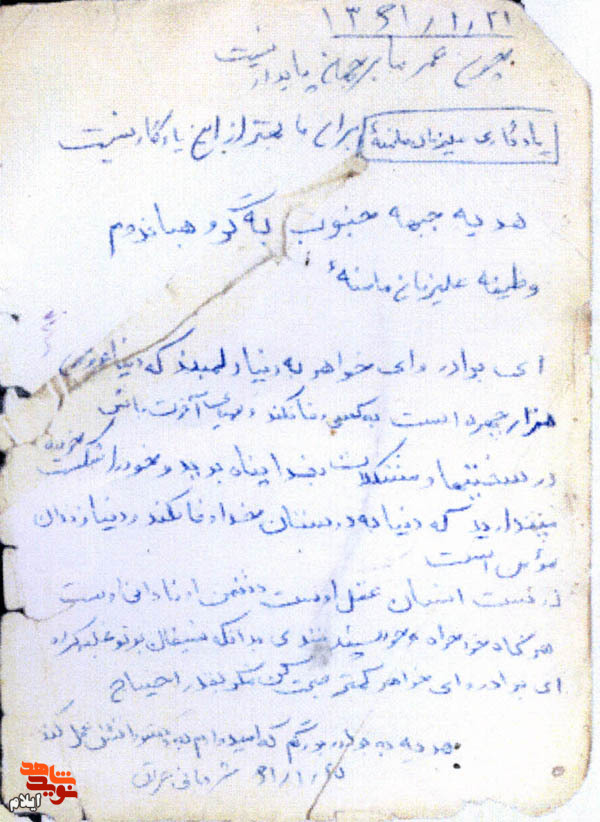 ۱۳۶۱/۱/۲۱
چون عمر ما بر جهان پایدار نیست
یادگاری علیزمان مامنهٔ برای ما بهتر از این یادگار نیست
هدیه جبهه جنوب به گروهبان دوم
وظیفه علیزمان مامنهٔ
ای برادر و ای خواهر به دنیا دل مبند که دنیا عروس
هزار چهره است به کسی وفا نکند و مهیای آخرت باش
در سختیها و مشکلات بخدا پناه برید و خود را شکست خورده
نپندارید که دنیا به دوستان خدا وفا نکند و دنیا زندان
مؤمن است
دوست انسان عقل اوست و دشمن او نادانی اوست
هرگاه خودخواه و خودپسند شدی بدانکه شیطان بر تو غلبه کرده
ای برادر و ای خواهر کمتر صحبت کن مگر بقدر احتیاج
هدیه به برادر بزرگم که امیدوارم به عمل کند
۶۱/۱/۲۰
شاهد
نوید
ایلام